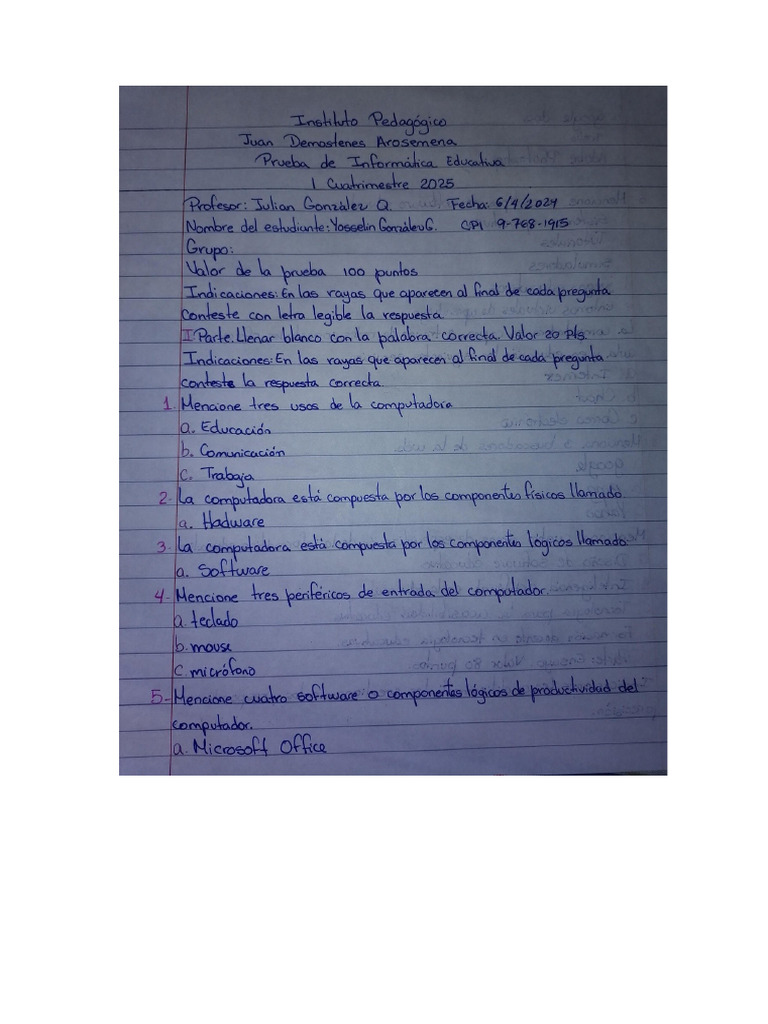 Instituto Pedagógico
Juan Demostenes Arosemena
Prueba de Informática Educativa
I Cuatrimestre 2025
Profesor: Julian González Q. Fecha: 6/4/2024
Nombre del estudiante: Yosselin González G. CPI 9-768-1915
Grupo:
Valor de la prueba 100 puntos
Indicaciones: En las rayas que aparecen al final de cada pregunta
conteste con letra legible la respuesta
I Parte. Llenar blanco con la palabra correcta. Valor 20 pts.
Indicaciones: En las rayas que aparecen al final de cada pregunta
conteste la respuesta correcta
1. Mencione tres usos de la computadora
a. Educación
b. Comunicación
c. Trabajo
2. La computadora está compuesta por los componentes físicos llamado
a. Hadware
3. La computadora está compuesta por los componentes lógicos llamado
a. Software
4. Mencione tres periféricos de entrada del computador.
a. teclado
b. mouse
c. micrófono
5. Mencione cuatro software o componentes lógicos de productividad del
computador.
a. Microsoft Office